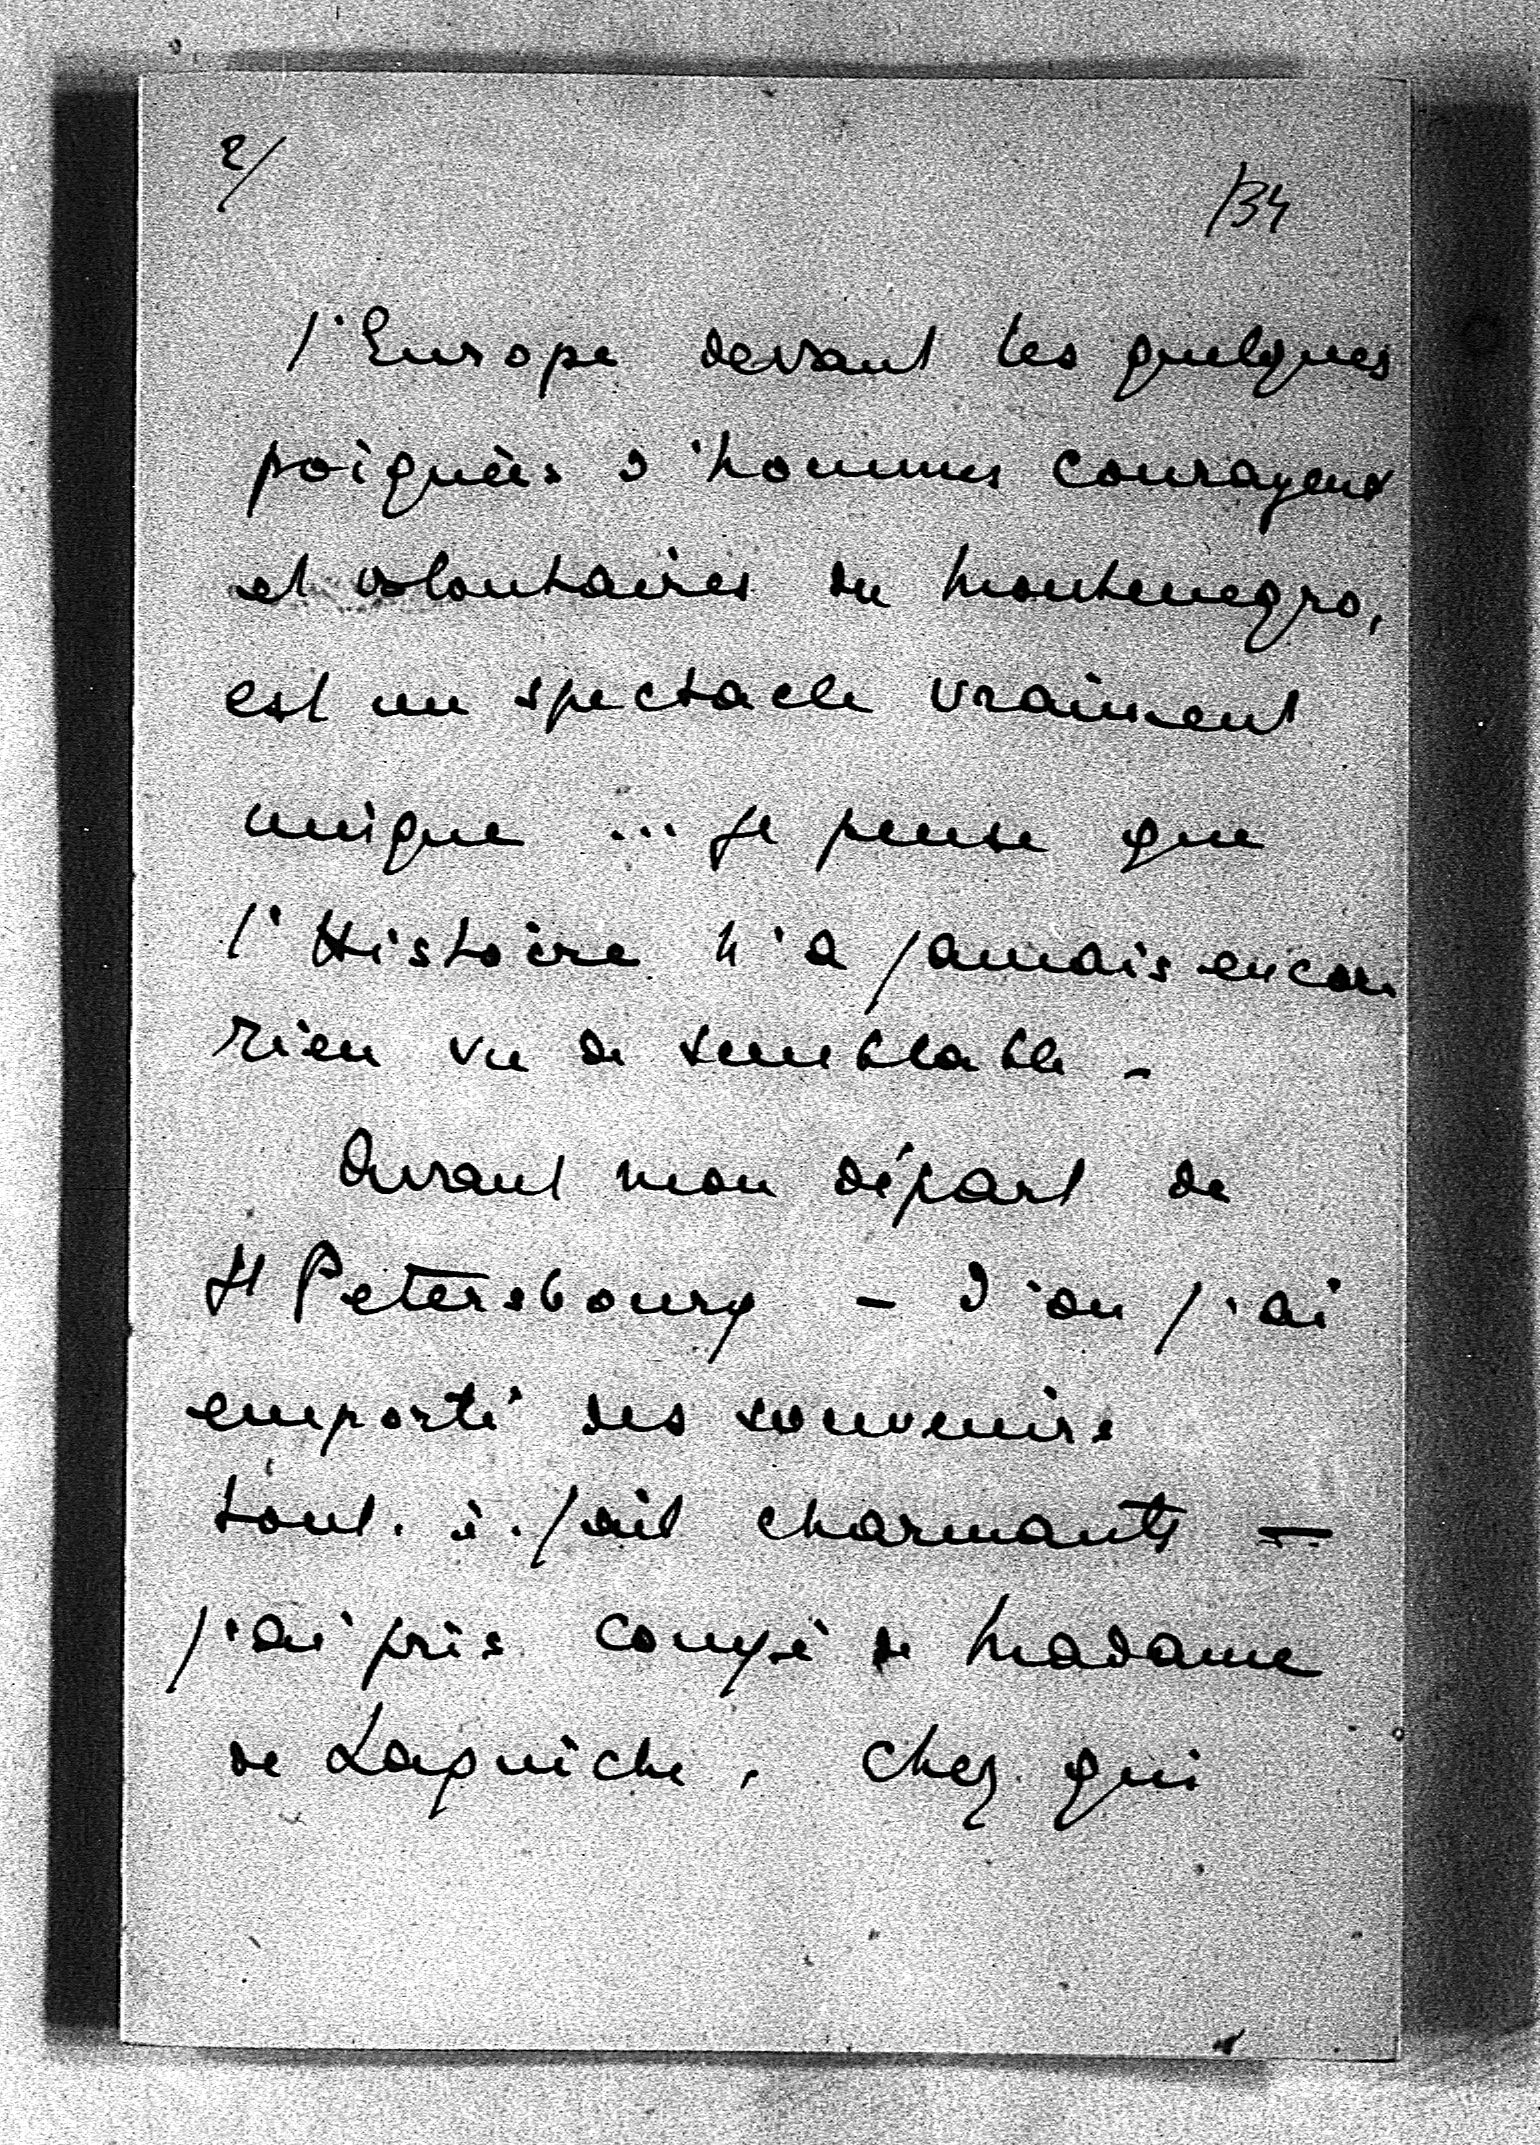 2/
134
l'Europe devant les quelques
poignées d'hommes courageux
et volontaires du Montenegro,
est un spectacle vraiment
unique ... Je pense que
l'Histoire n'a jamais encore
rien vu de semblable -
Avant mon départ de
St Petersbourg - d'où j'ai
emporté des souvenirs
tout. à. fait charmants -
j'ai pris congé de Madame
de Laguiche, chez qui